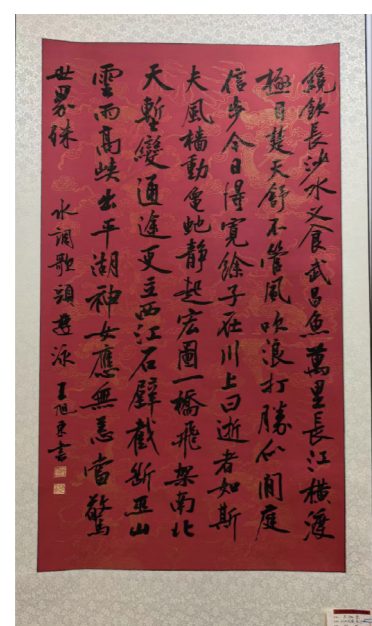 纔飲長沙水又食武昌魚萬里長江橫渡
極目楚天舒不管風吹浪打勝似閒庭
信步今日得寬餘子在川上曰逝者如斯
夫風檣動龜蛇靜起宏圖一橋飛架南北
天塹變通途更立西江石壁截斷巫山
雲雨高峽出平湖神女應無恙當驚
世界殊 水調歌頭遊泳 王旭東書